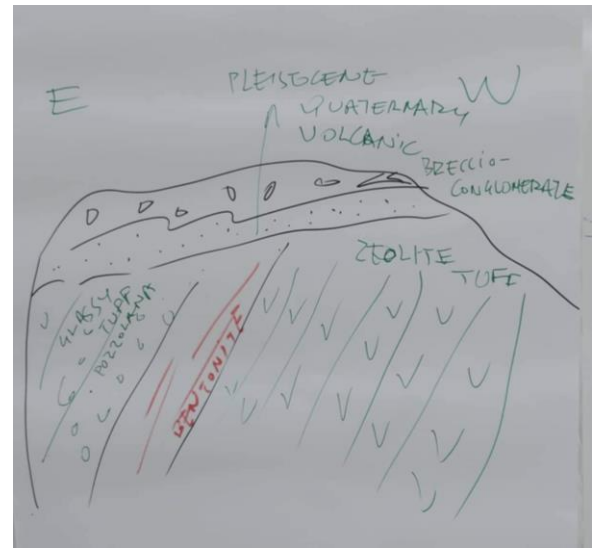 E
PLEISTOCENE
QUATERNARY
VOLCANIC
W
BRECCIO-
CONGLOMERATE
ZEOLITE
TUFF
GLASSY
TUFF
POZZOLANA
BENTONITE